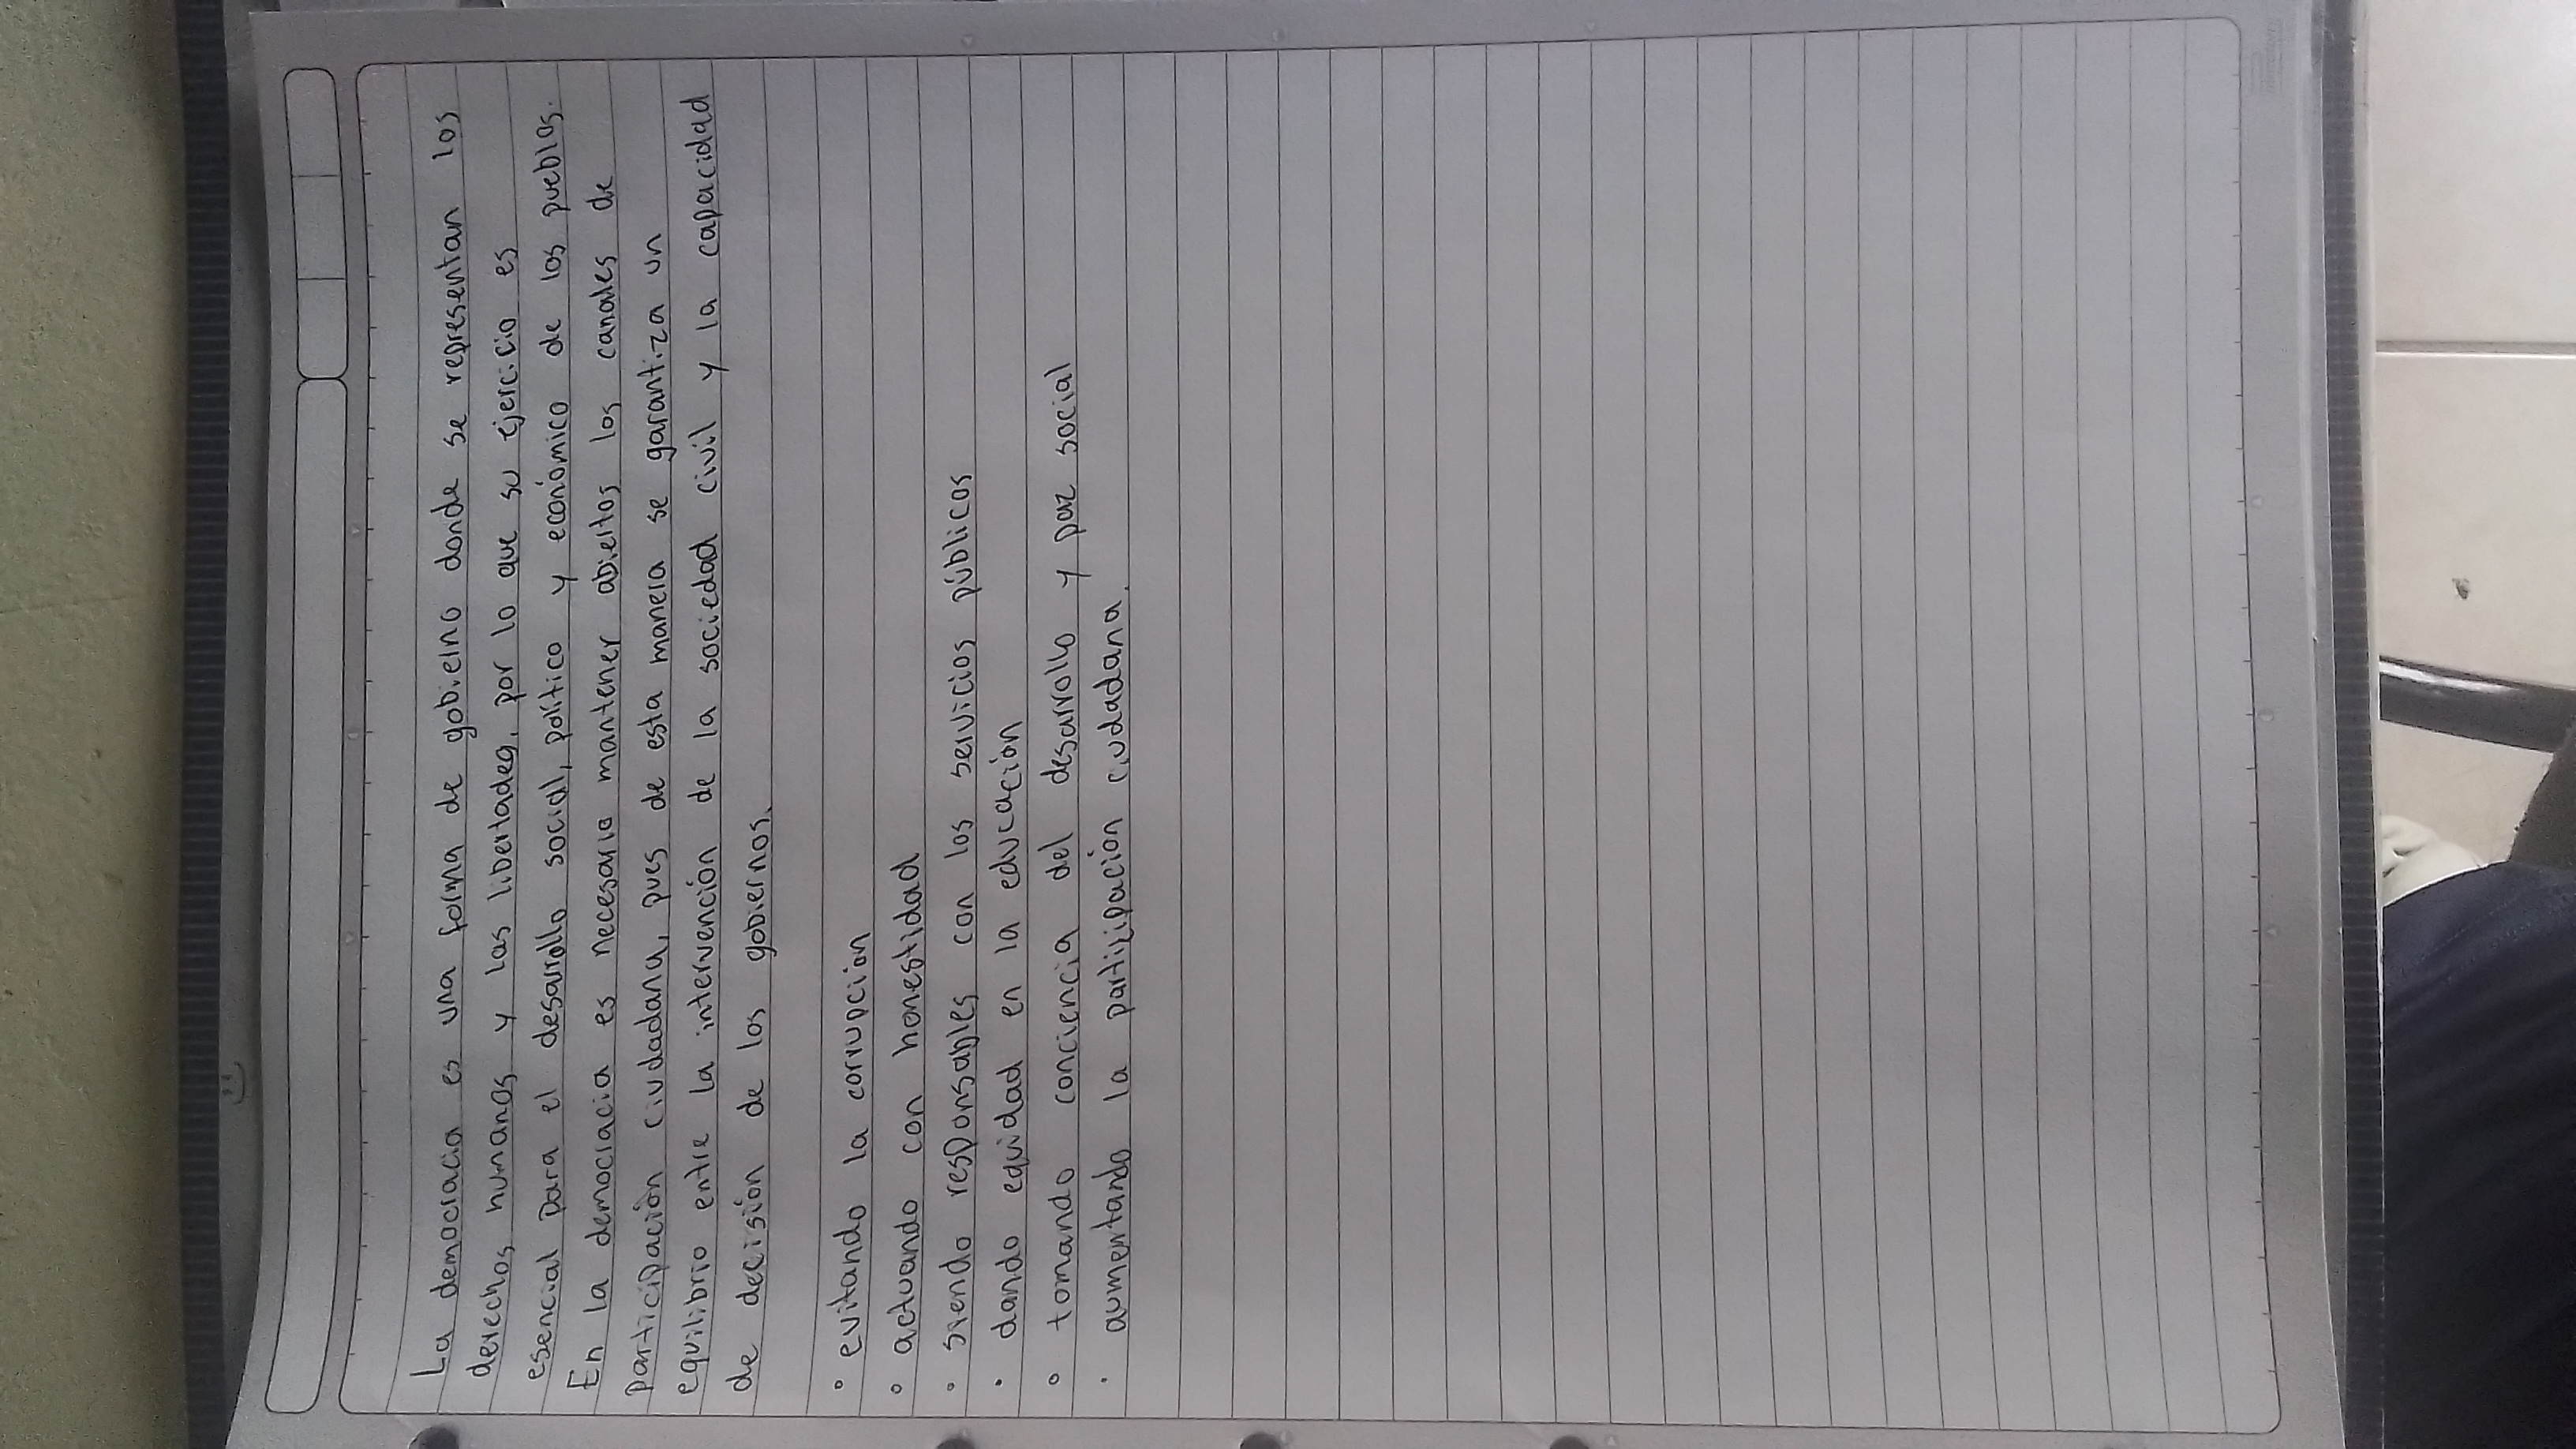 La democracia es una forma de gobierno donde se representan los
derechos humanos y las libertades, por lo que su ejercicio es
esencial para el desarrollo social, político y económico de los pueblos.
En la democracia es necesario mantener abiertos los canales de
participación ciudadana, pues de esta manera se garantiza un
equilibrio entre la intervención de la sociedad civil y la capacidad
de decisión de los gobiernos.
• evitando la corrupcion
• actuando con honestidad
• siendo responsables con los servicios públicos
• dando equidad en la educación
• tomando conciencia del desarrollo y paz social
• aumentando la participacion ciudadana.